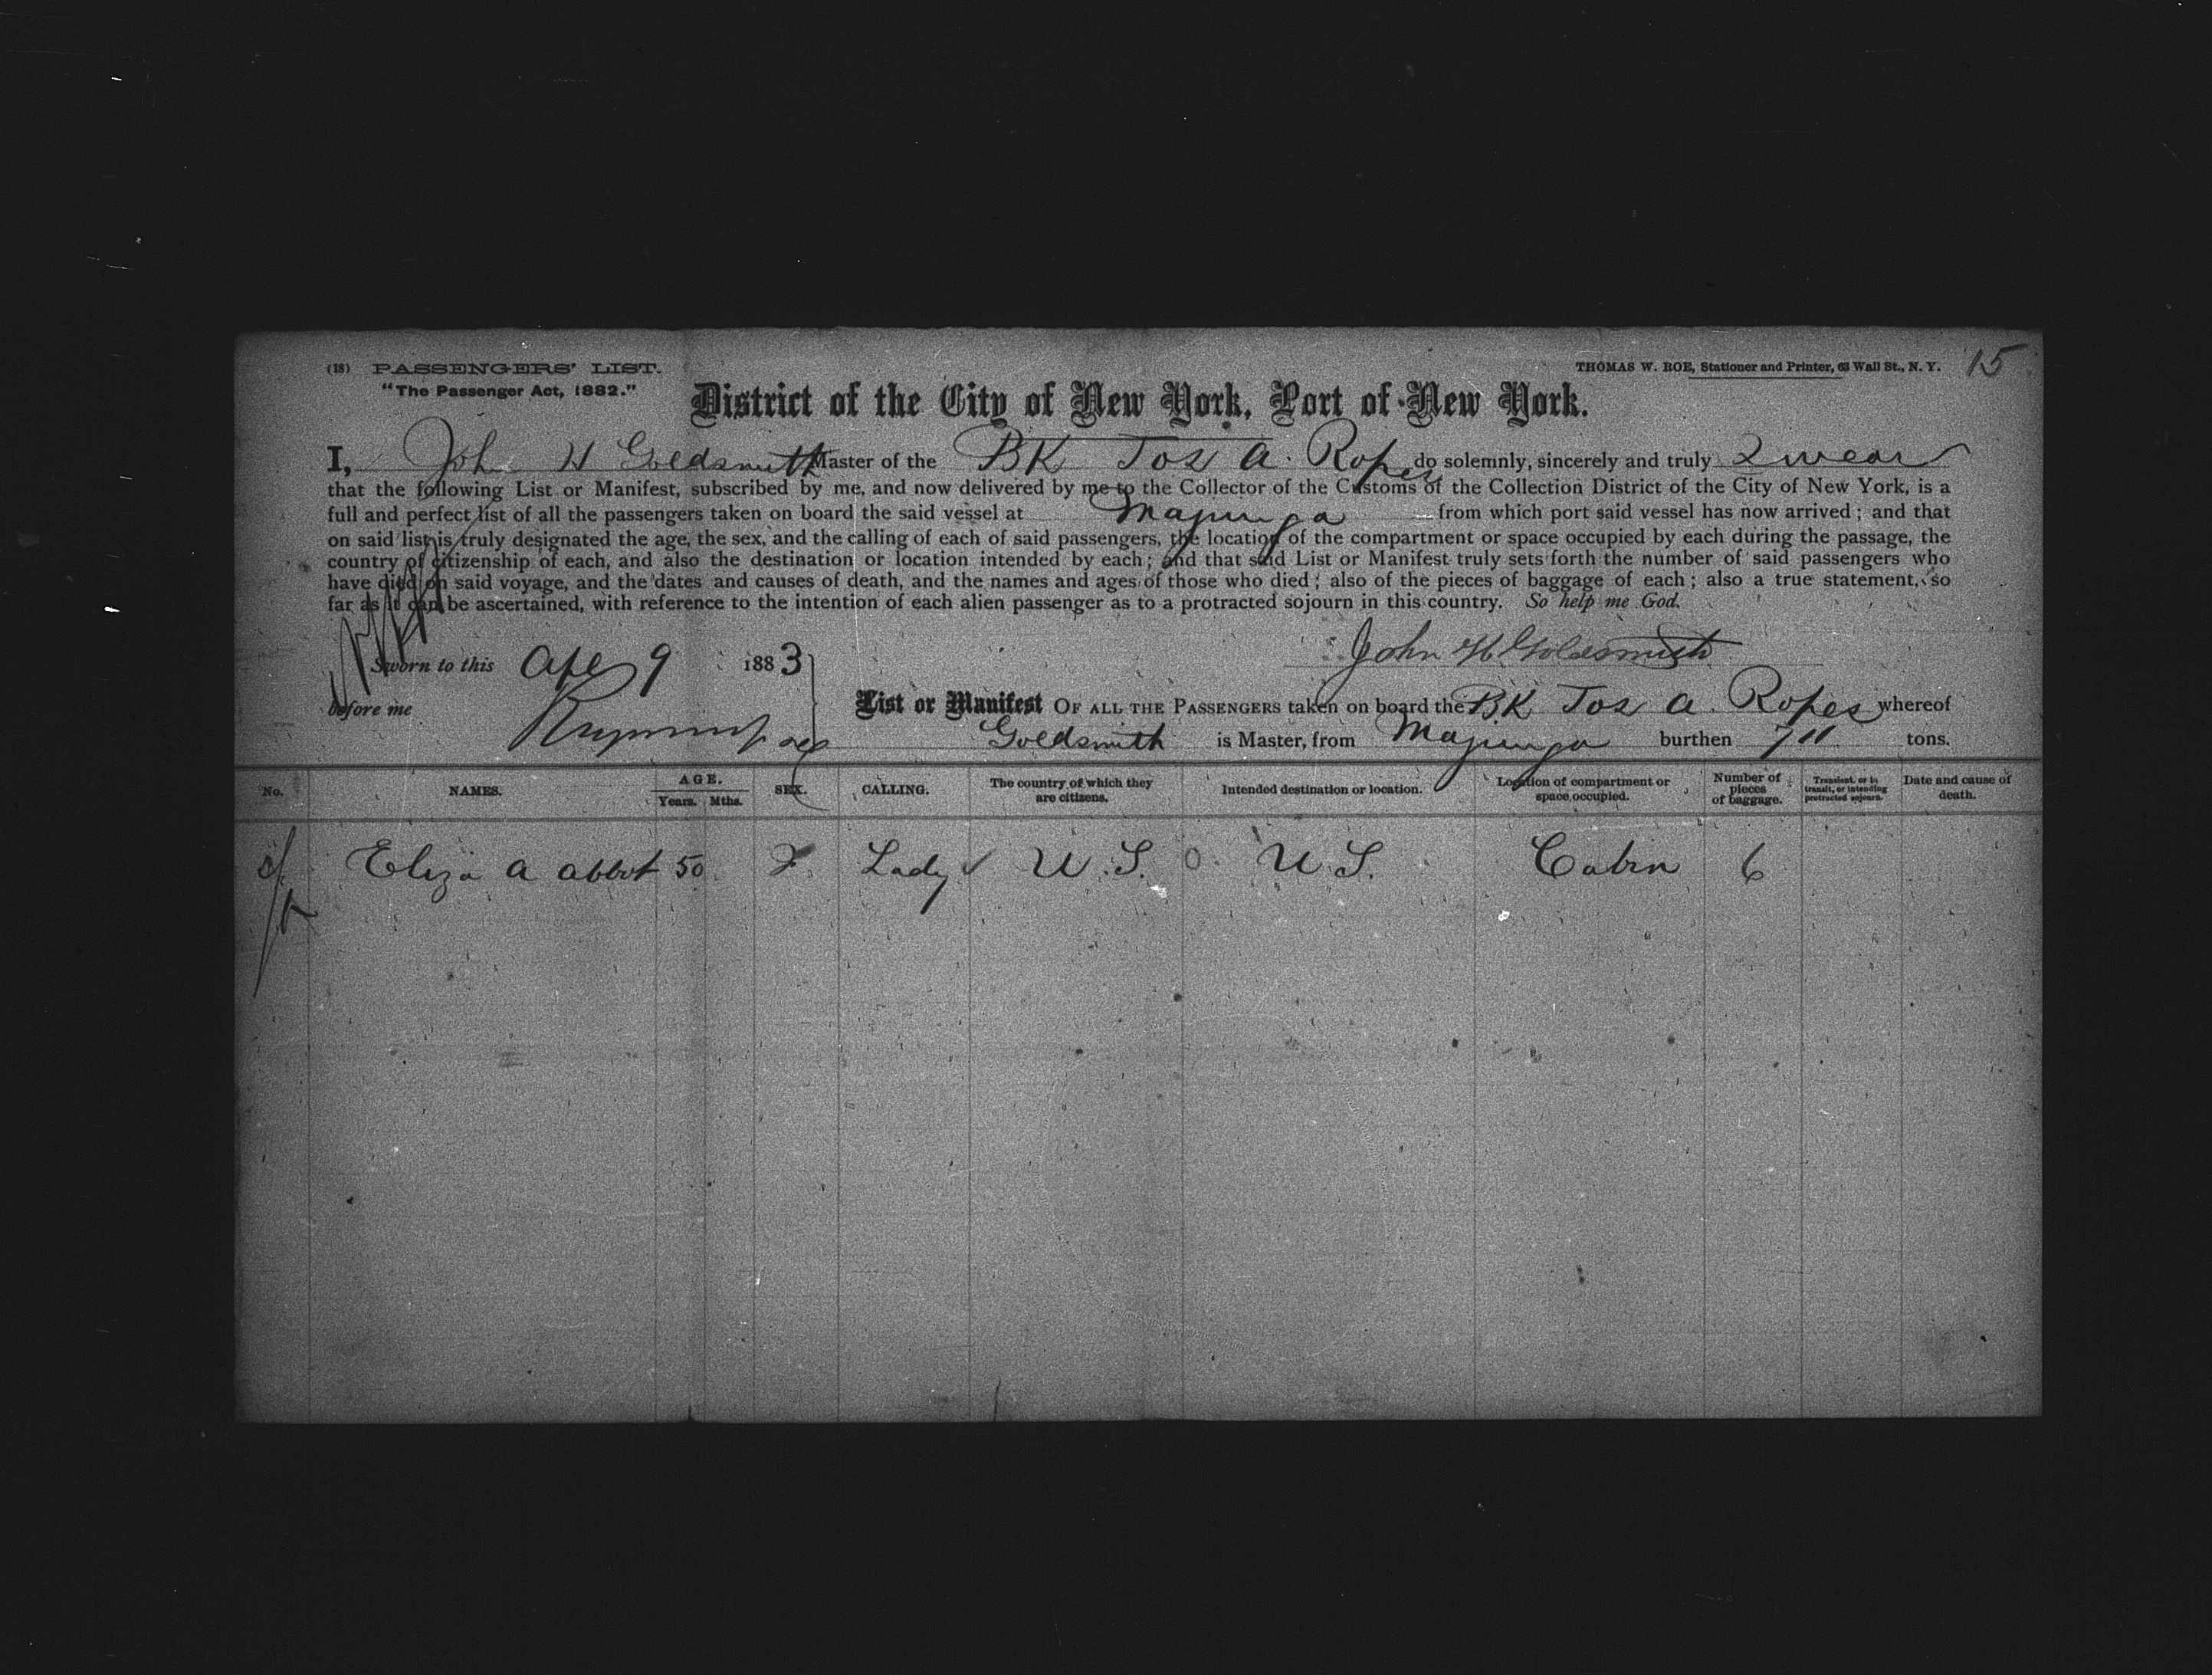 (18) PASSENGERS' LIST.
THOMAS W. ROE, Stationer and Printer, 63 Wall St., N. Y. 15
"The Passenger Act, 1882."
District of the City of New York, Port of New York.
I, John H Goldsmith Master of the BK Jos A. Ropes do solemnly, sincerely and truly swear
that the following List or Manifest, subscribed by me, and now delivered by me to the Collector of the Customs of the Collection District of the City of New York, is a
full and perfect list of all the passengers taken on board the said vessel at Majunga from which port said vessel has now arrived; and that
on said list is truly designated the age, the sex, and the calling of each of said passengers, the location of the compartment or space occupied by each during the passage, the
country of citizenship of each, and also the destination or location intended by each; and that said List or Manifest truly sets forth the number of said passengers who
have died on said voyage, and the dates and causes of death, and the names and ages of those who died; also of the pieces of baggage of each; also a true statement, so
far as it can be ascertained, with reference to the intention of each alien passenger as to a protracted sojourn in this country. So help me God.
John H Goldsmith
Sworn to this Apl 9 1883
before me
List or Manifest OF ALL THE PASSENGERS taken on board the BK Jos A. Ropes whereof
Goldsmith is Master, from Majunga burthen 711 tons.
No. NAMES. AGE. Years. Mths. SEX. CALLING. The country of which they are citizens. Intended destination or location. Location of compartment or space occupied. Number of pieces of baggage. Transient, or in transit, or intending protracted sojourn. Date and cause of death.
Eliza A Abbot 50 F Lady U.S. U.S. Cabin 6